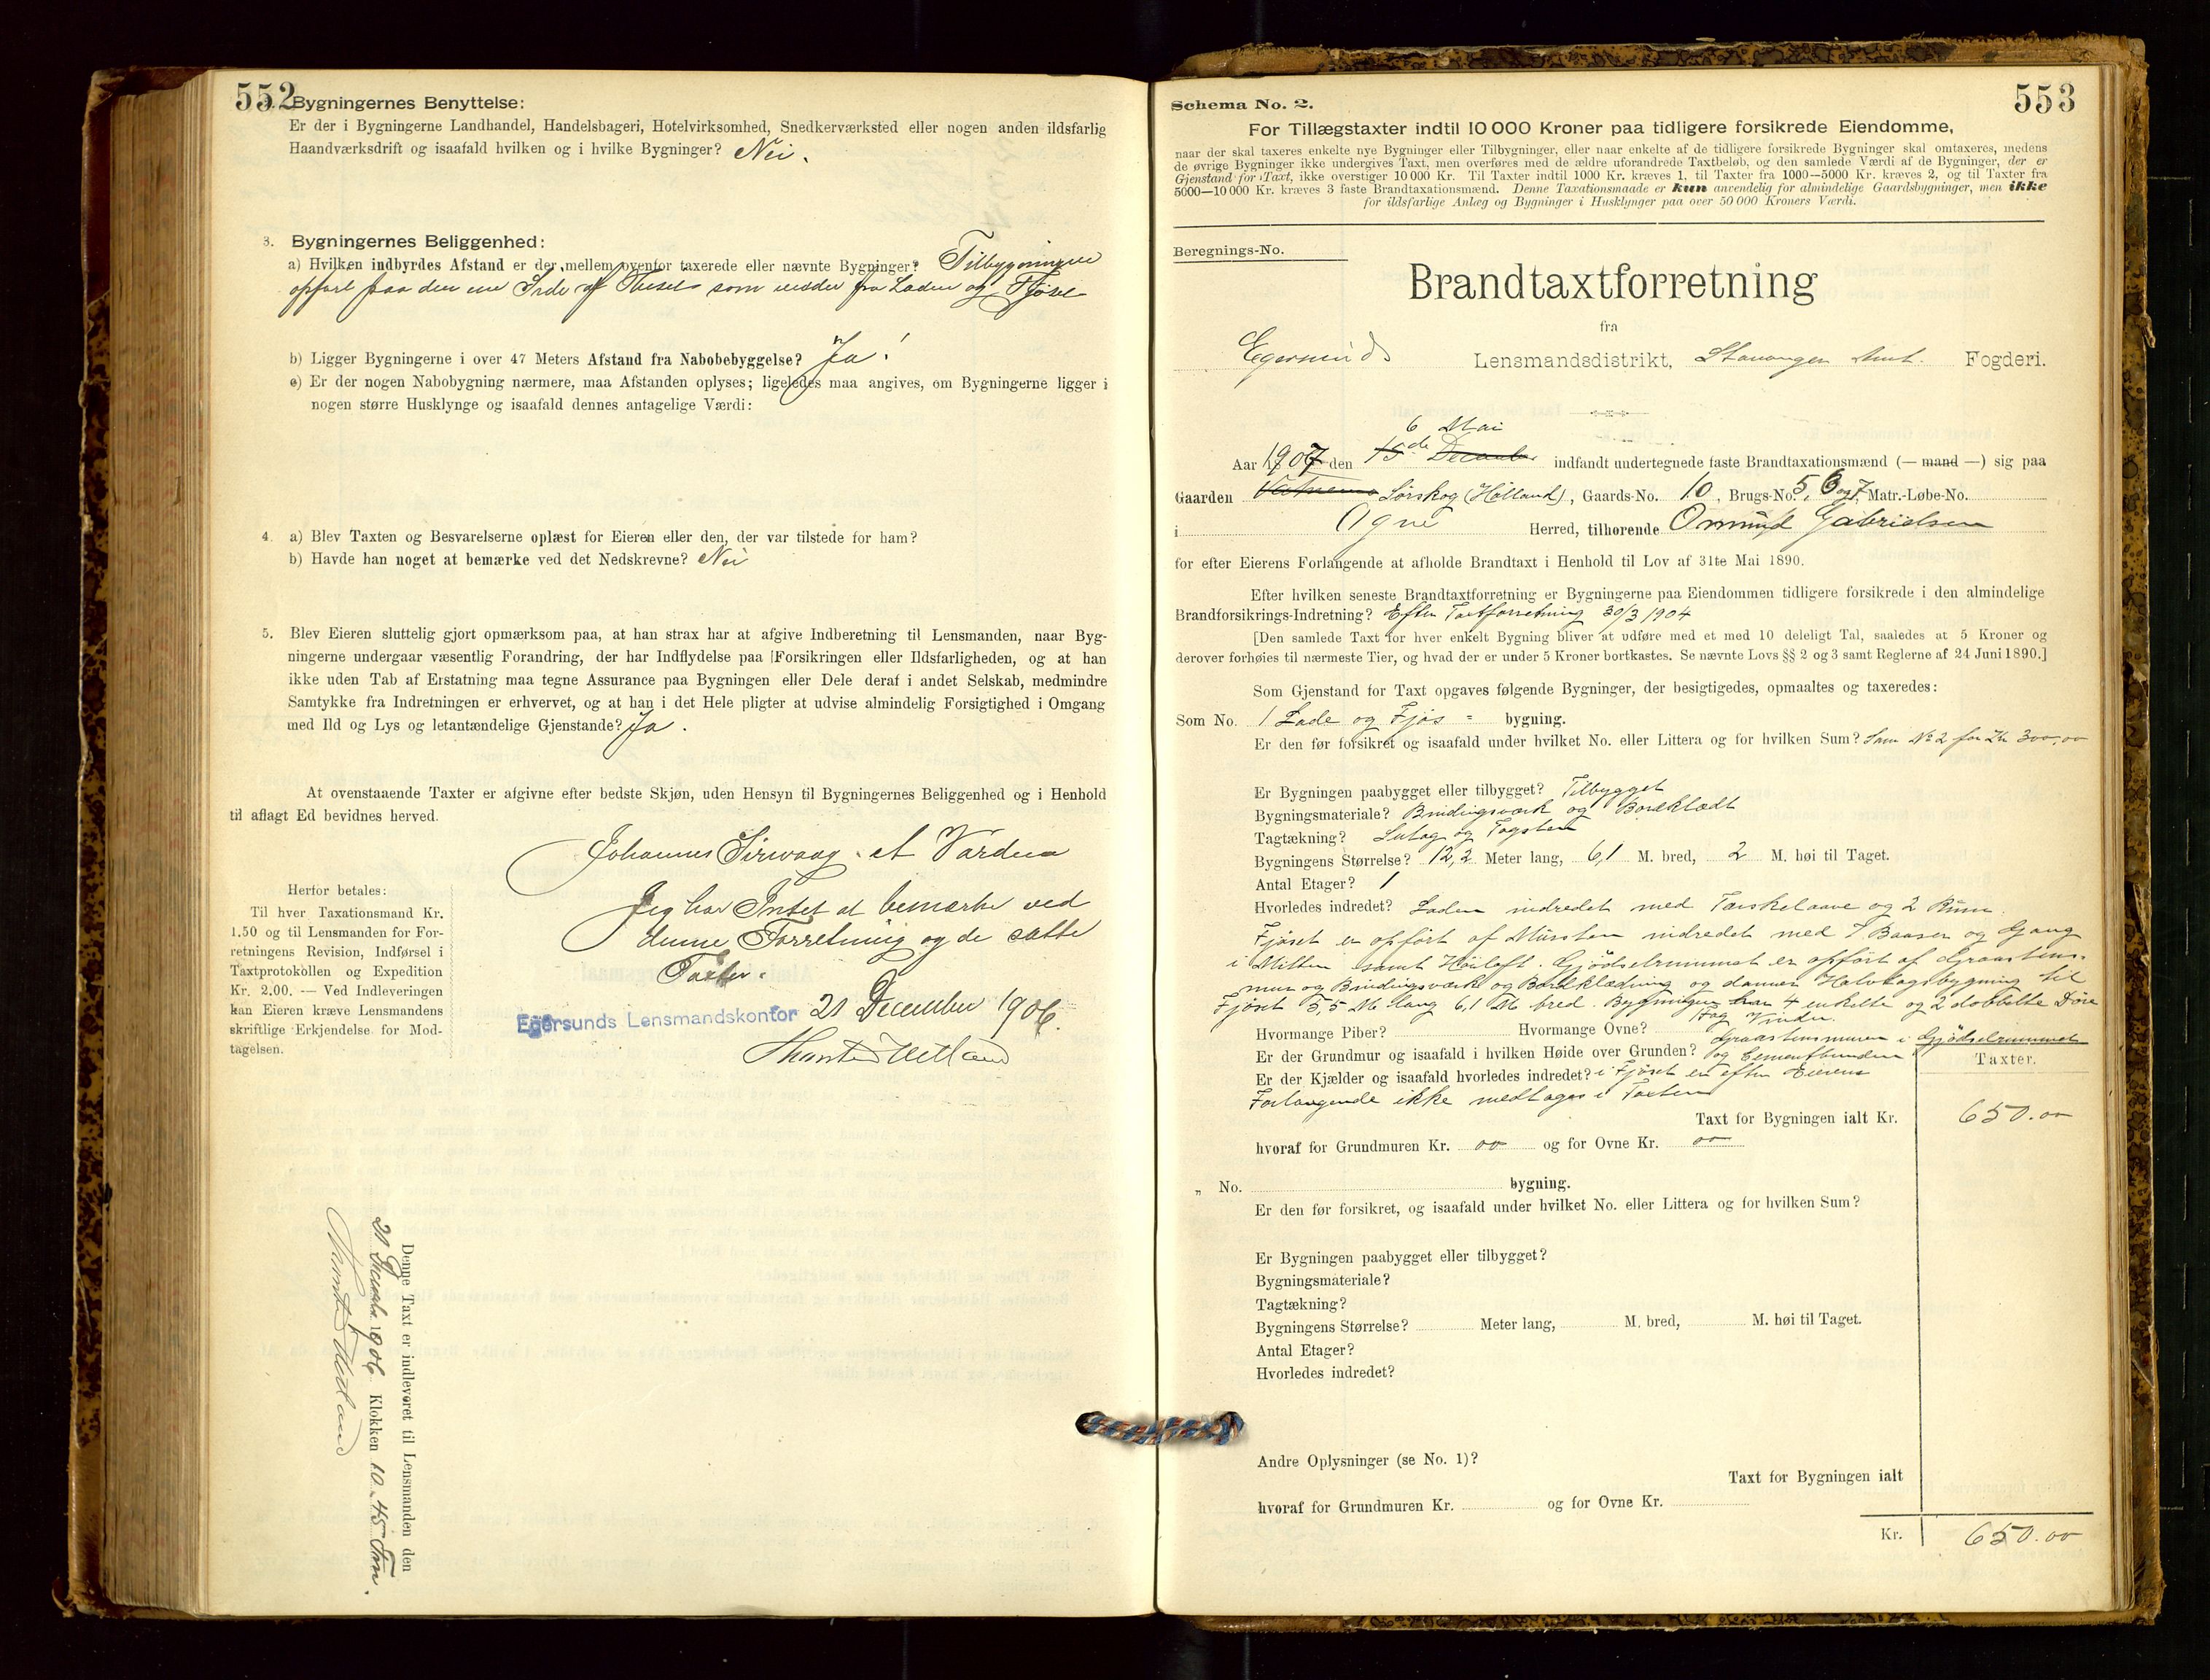 552
Bygningernes Benyttelse:
Er der i Bygningerne Landhandel, Handelsbageri, Hotelvirksomhed, Snedkerværksted eller nogen anden ildsfarlig
Haandværksdrift og isaafald hvilken og i hvilke Bygninger? Nei.
3. Bygningernes Beliggenhed:
a) Hvilken indbyrdes Afstand er der mellem ovenfor taxerede eller nævnte Bygninger? Tilbygningen
opført paa den ene Side af Huset som vender fra Laden og Fjøset
b) Ligger Bygningerne i over 47 Meters Afstand fra Nabobebyggelse? Ja!
c) Er der nogen Nabobygning nærmere, maa Afstanden oplyses; ligeledes maa angives, om Bygningerne ligger i
nogen større Husklynge og isaafald dennes antagelige Værdi:
4. a) Blev Taxten og Besvarelserne oplæst for Eieren eller den, der var tilstede for ham?
b) Havde han noget at bemærke ved det Nedskrevne? Nei
5. Blev Eieren sluttelig gjort opmærksom paa, at han strax har at afgive Indberetning til Lensmanden, naar Byg-
ningerne undergaar væsentlig Forandring, der har Indflydelse paa Forsikringen eller Ildsfarligheden, og at han
ikke uden Tab af Erstatning maa tegne Assurance paa Bygningen eller Dele deraf i andet Selskab, medmindre
Samtykke fra Indretningen er erhvervet, og at han i det Hele pligter at udvise almindelig Forsigtighed i Omgang
med Ild og Lys og letantændelige Gjenstande? Ja.
At ovenstaaende Taxter er afgivne efter bedste Skjøn, uden Hensyn til Bygningernes Beliggenhed og i Henhold
til aflagt Ed bevidnes herved.
Johannes Sirevaag
Jeg har Intet at bemærke ved
denne Forretning og de satte
Taxter.
Egersunds Lensmandskontor 21 December 1906.
Herfor betales:
Til hver Taxationsmand Kr.
1.50 og til Lensmanden for For-
retningens Revision, Indførsel i
Taxtprotokollen og Expedition
Kr. 2.00. — Ved Indleveringen
kan Eieren kræve Lensmandens
skriftlige Erkjendelse for Mod-
tagelsen.
Denne Taxt er indleveret til Lensmanden den
21 Decembr 1906 Klokken 10.45 Fm.
553
Schema No. 2.
For Tillægstaxter indtil 10 000 Kroner paa tidligere forsikrede Eiendomme,
naar der skal taxeres enkelte nye Bygninger eller Tilbygninger, eller naar enkelte af de tidligere forsikrede Bygninger skal omtaxeres, medens
de øvrige Bygninger ikke undergives Taxt, men overføres med de ældre uforandrede Taxtbeløb, og den samlede Værdi af de Bygninger, der er
Gjenstand for Taxt, ikke overstiger 10 000 Kr. Til Taxter indtil 1000 Kr. kræves 1, til Taxter fra 1000—5000 Kr. kræves 2, og til Taxter fra
5000—10 000 Kr. kræves 3 faste Brandtaxationsmænd. Denne Taxationsmaade er kun anvendelig for almindelige Gaardsbygninger, men ikke
for ildsfarlige Anlæg og Bygninger i Husklynger paa over 50 000 Kroners Værdi.
Beregnings-No.
Brandtaxtforretning
fra
Egersunds Lensmandsdistrikt, Stavanger Amt. Fogderi.
6 Mai
Aar 1907 den 15de December indfandt undertegnede faste Brandtaxationsmænd (— mand —) sig paa
Gaarden Sørskog (Hølland), Gaards-No. 10, Brugs-No. 5, 6 og 7 Matr.-Løbe-No.
i Ogne Herred, tilhørende Omund Gabrielsen
for efter Eierens Forlangende at afholde Brandtaxt i Henhold til Lov af 31te Mai 1890.
Efter hvilken seneste Brandtaxtforretning er Bygningerne paa Eiendommen tidligere forsikrede i den almindelige
Brandforsikrings-Indretning? Efter Taxtforretning 30/3 1904
[Den samlede Taxt for hver enkelt Bygning bliver at udføre med et med 10 deleligt Tal, saaledes at 5 Kroner og
derover forhøies til nærmeste Tier, og hvad der er under 5 Kroner bortkastes. Se nævnte Lovs §§ 2 og 3 samt Reglerne af 24 Juni 1890.]
Som Gjenstand for Taxt opgaves følgende Bygninger, der besigtigedes, opmaaltes og taxeredes:
Som No. 1 Lade og Fjøs = bygning.
Er den før forsikret og isaafald under hvilket No. eller Littera og for hvilken Sum? Som No 2 for Kr 300,00
Er Bygningen paabygget eller tilbygget? Tilbygget
Bygningsmateriale? Bindingsværk og Bordklædt
Tagtækning? Sutag og Tagsten
Bygningens Størrelse? 12,2 Meter lang, 6,1 M. bred, 2 M. høi til Taget.
Antal Etager? 1
Hvorledes indredet? Laden indredet med Tærskelaave og 2 Rum.
Fjøset er opført af Mursten indredet med 7 Baaser og Gang
i Midten samt Høiloft. Gjødselrummet er opført af Graastens-
mur og Bindingsværk og Bordklædning og danner Halvtagsbygning til
Fjøset 5,5 M lang 6,1 M bred. Bygningen har 4 enkelte og 2 dobbelte Døre
og Vinduer.
Hvormange Piber? Hvormange Ovne?
Er der Grundmur og isaafald i hvilken Høide over Grunden? Graastensmuren i Gjødselrummet
og Cementbunden
Er der Kjælder og isaafald hvorledes indredet? i Fjøset er efter Eierens
Forlangende ikke medtaget i Taxten
Taxter.
Taxt for Bygningen ialt Kr. 650.00
hvoraf for Grundmuren Kr. 00 og for Ovne Kr. 00
„ No. bygning.
Er den før forsikret, og isaafald under hvilket No. eller Littera og for hvilken Sum?
Er Bygningen paabygget eller tilbygget?
Bygningsmateriale?
Tagtækning?
Bygningens Størrelse? Meter lang, M. bred, M. høi til Taget.
Antal Etager?
Hvorledes indredet?
Andre Oplysninger (se No. 1)?
Taxt for Bygningen ialt
hvoraf for Grundmuren Kr. og for Ovne Kr.
Kr. 650.00